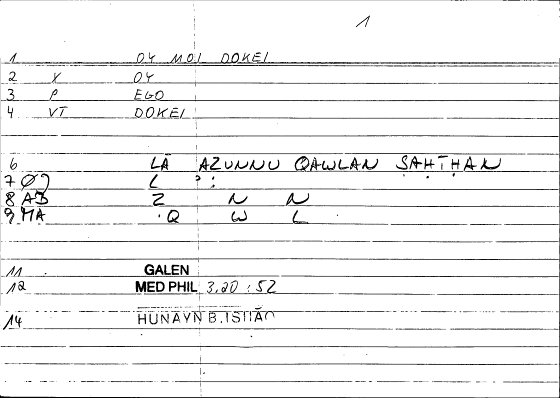 1
1 OY MOI DOKEI
2 X OY
3 P EGO
4 VT DOKEI
6 LĀ AZUNNU QAWLAN ṢAḤĪḤAN
7 L
8 AB Z N N
9 MA Q W L
11 GALEN
12 MED PHIL 3.20 : 52
14 HUNAYN B. ISḤĀQ